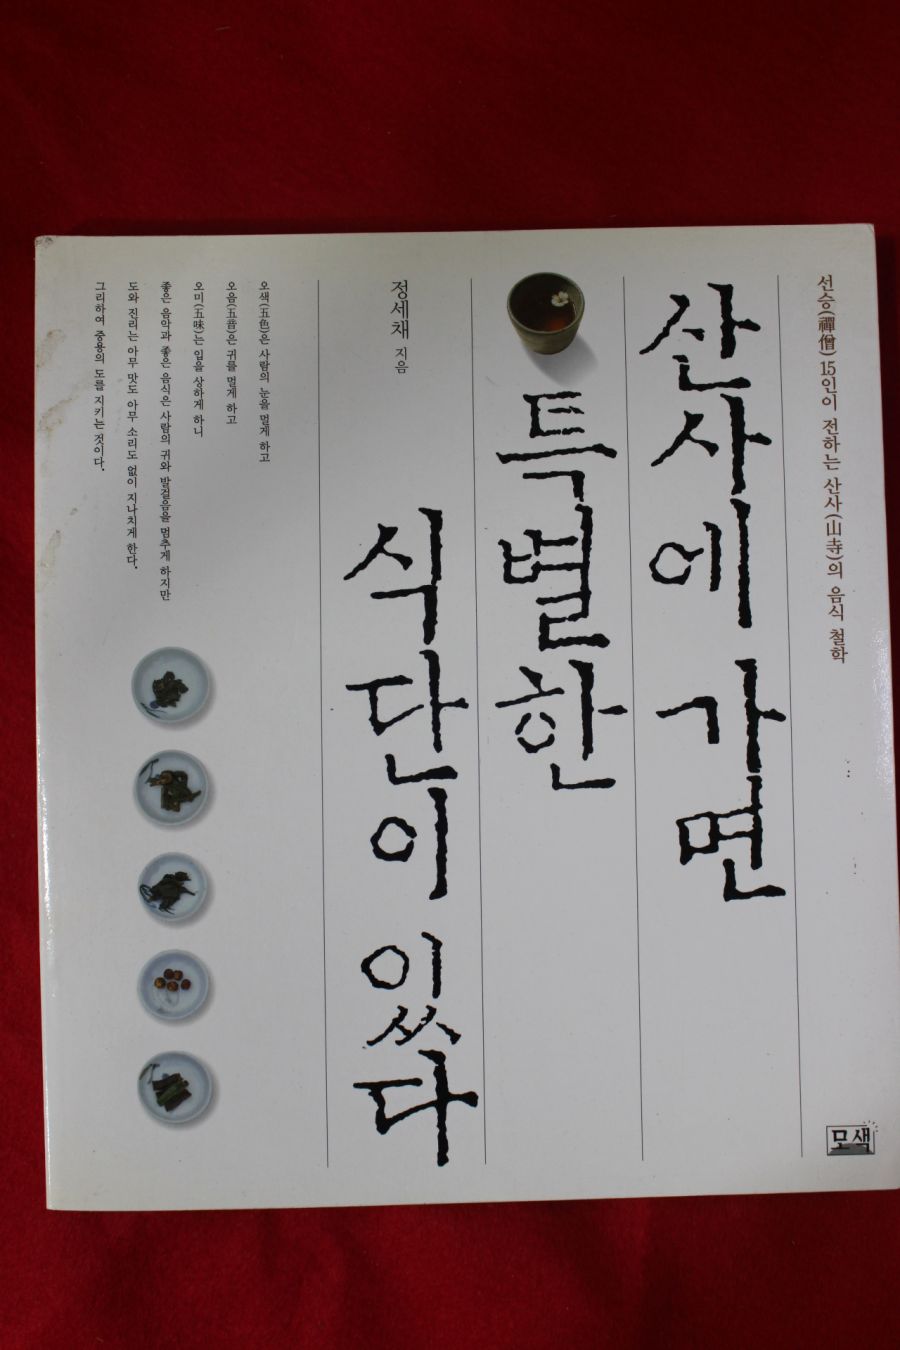 선승(禪僧) 15인이 전하는 산사(山寺)의 음식 철학
산사에 가면
특별한
식단이 있다
정세채 지음
오색(五色)은 사람의 눈을 멀게 하고
오음(五音)은 귀를 멀게 하고
오미(五味)는 입을 상하게 하니
좋은 음악과 좋은 음식은 사람의 귀와 발걸음을 멈추게 하지만
도와 진리는 아무 맛도 아무 소리도 없이 지나치게 한다.
그리하여 중용의 도를 지키는 것이다.
모색